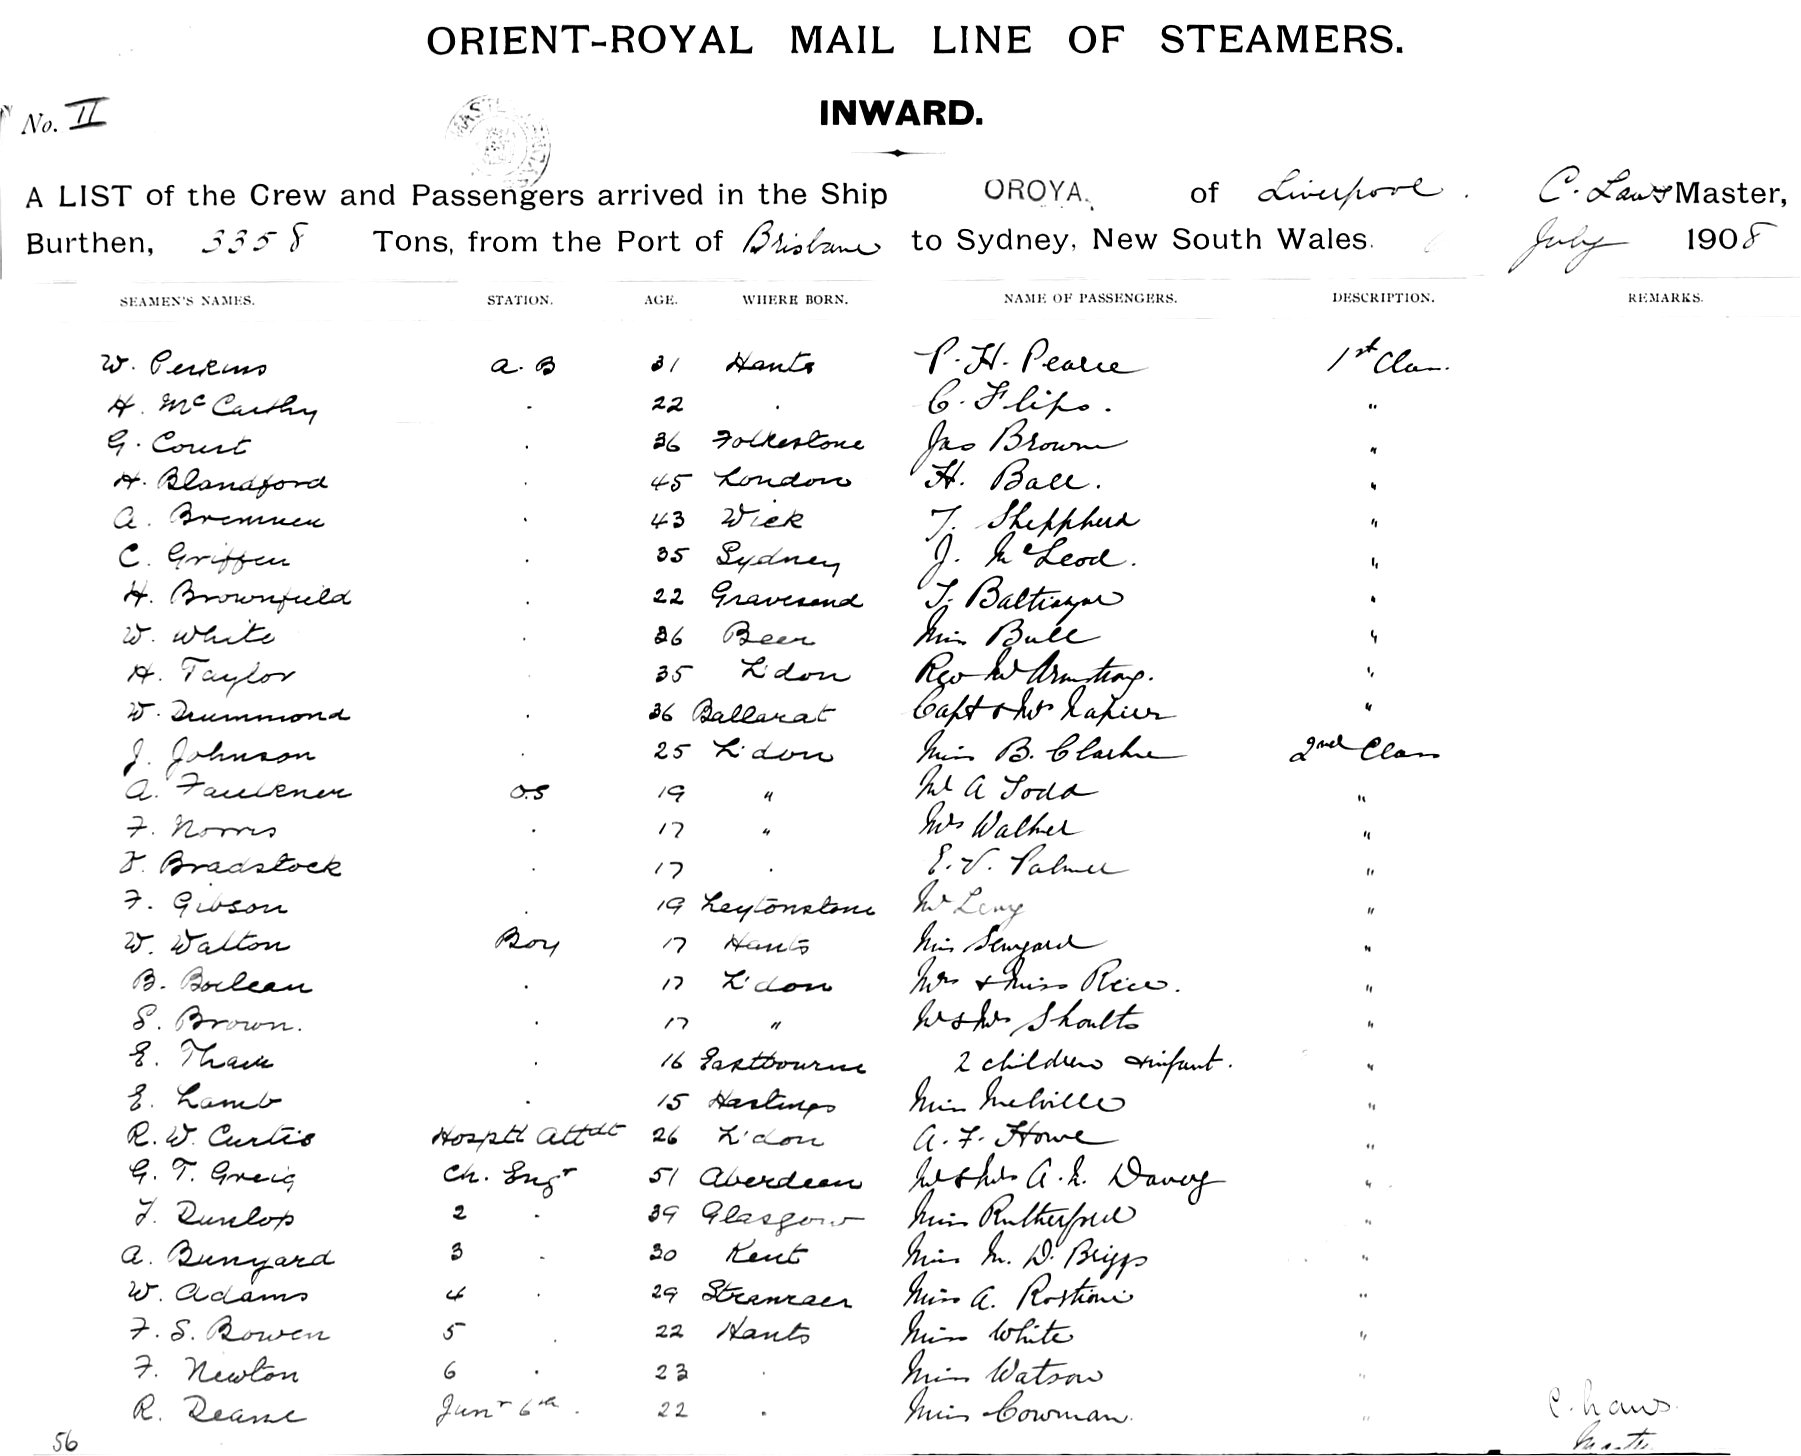 ORIENT-ROYAL MAIL LINE OF STEAMERS.
INWARD.
No. II
A LIST of the Crew and Passengers arrived in the Ship OROYA. of Liverpool. C. Laws Master,
Burthen, 3358 Tons, from the Port of Brisbane to Sydney, New South Wales. July 1908
SEAMEN'S NAMES. STATION. AGE. WHERE BORN. NAME OF PASSENGERS. DESCRIPTION. REMARKS.
W. Perkins A.B 31 Hants P. H. Pearce 1st Class.
H. McCarthy . 22 . C. Flips. "
G. Court . 36 Folkestone Jas Brown "
H. Blandford . 45 London H. Ball. "
A. Bremner . 43 Wick T. Sheppherd "
C. Griffen . 35 Sydney J. McLeod. "
H. Brownfield . 22 Gravesend T. "
W. White . 36 Beer Miss Bull "
H. Taylor 35 L'don Rev Mr Armstrong. "
W. Drummond . 36 Ballarat Capt & Mrs Napier "
J. Johnson . 25 L'don Miss B. Clarke 2nd Class
A. Faulkner O.S 19 " Mr A Todd "
F. Norris . 17 " Mrs Walker "
F. Bradstock . 17 . E. V. Palmer "
F. Gibson . 19 Leytonstone Mr Levy "
W. Walton Boy 17 Hants Miss "
B. Boileau . 17 L'don Mrs & Miss Rice. "
S. Brown. . 17 " Mr & Mrs Shoults "
E. . 16 Eastbourne 2 children & infant. "
E. Lamb . 15 Hastings Miss Melville "
R. W. Curtis Hosptl Attdt 26 L'don A. F. Howe "
G. T. Greig Ch. Engr 51 Aberdeen Mr & Mrs A. N. Davey "
J. Dunlop 2 . 39 Glasgow Miss Rutherford "
A. Bunyard 3 . 30 Kent Miss M. D. Briggs "
W. Adams 4 . 29 Stranraer Miss A. "
F. S. Bowen 5 . 22 Hants Miss White "
F. Newton 6 . 23 . Miss Watson "
R. Deane Junr 6th . 22 . Miss Cowman. " C. Laws.
56 Master